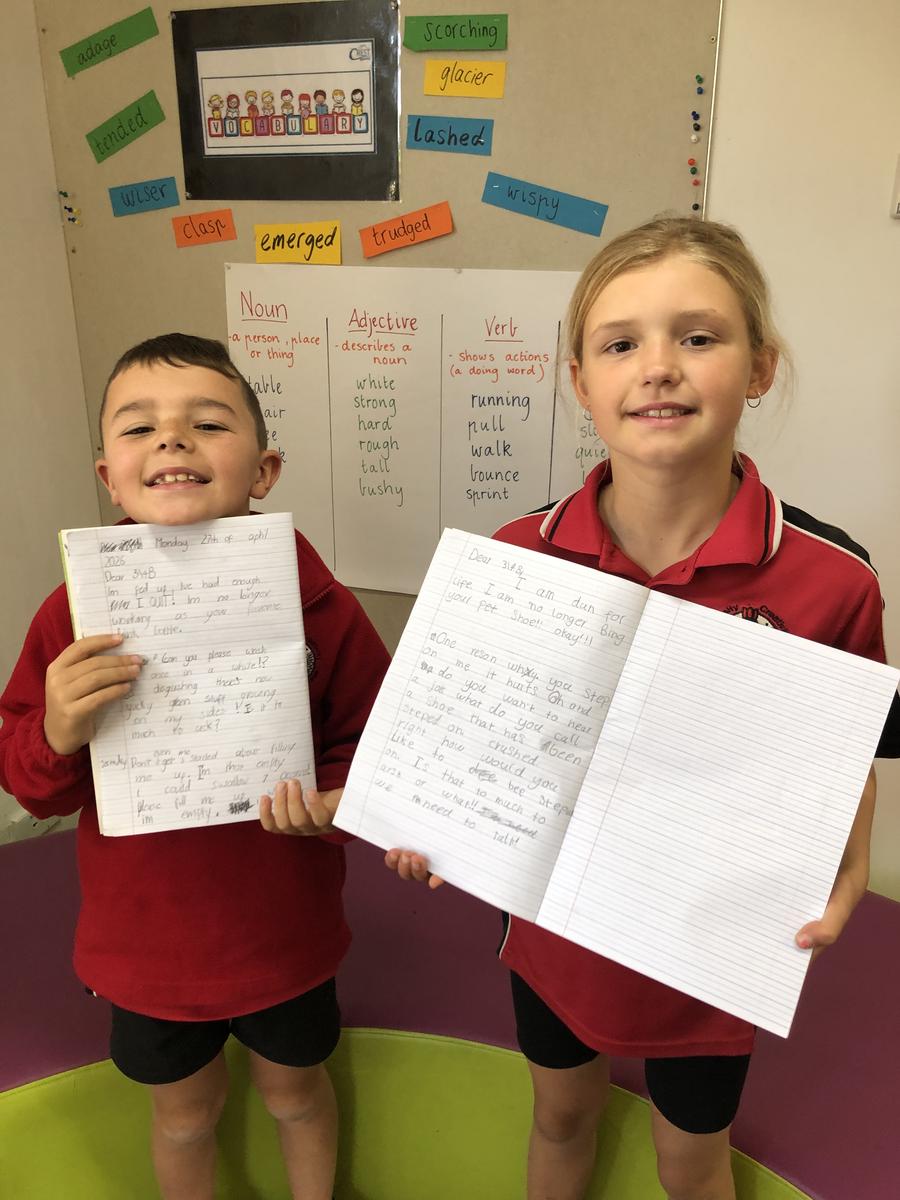 adage
tended
wiser
clasp
emerged
trudged
wispy
Lashed
glacier
scorching
CREST
VOCABULARY
Noun
-a person, place
or thing
table
air
Adjective
- describes a
noun
white
strong
hard
rough
tall
bushy
Verb
- shows actions
(a doing word)
running
pull
walk
bounce
sprint
quie
Monday 27th of april
2026
Dear 3/4B
Im fed up! Ive had enough.
I QUIT! Im no longer
working as your favorite
drink bottle.
Can you please wash
once in a while!?
disgusting theres now
yucky green stuff growing
on my sides! Is it to
much to ask?
Dont even me started about filling
me up. Im that empty
I could swallow
please fill me up
im empty.
Dear 3/4B,
I am dun for
life. I am no longer Bing
your Pet Shoe!! okay!!!
One reson why you step
on me it hurts Oh and
do you want to hear
a joe what do you call
a shoe that has Been
steped on. crushed
right how would you
Like to bee Steped
on. Is that to much to
arsk or what!!
we need to talk!